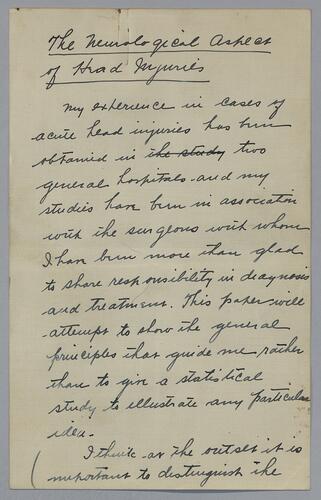 The Neurological Aspect
of Head Injuries
My experience in cases of
acute head injuries has been
obtained in the study two
general hospitals and my
studies have been in association
with the surgeons with whom
I have been more than glad
to share responsibility in diagnosis
and treatment. This paper will
attempt to show the general
principles that guide me rather
than to give a statistical
study to illustrate any particular
idea.
I think at the outset it is
important to distinguish the